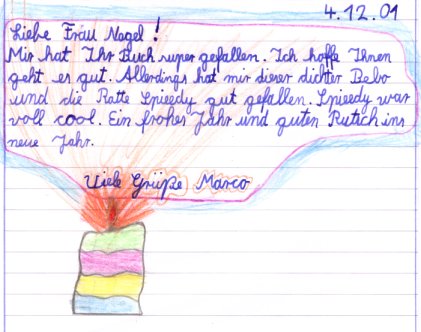 4.12.01
Liebe Frau Nagel!
Mir hat Ihr Buch super gefallen. Ich hoffe Ihnen
geht es gut. Allerdings hat mir dieser dichter Bebo
und die Ratte Spieedy gut gefallen. Spieedy war
voll cool. Ein frohes Jahr und guten Rutsch ins
neue Jahr.
Viele Grüße Marco